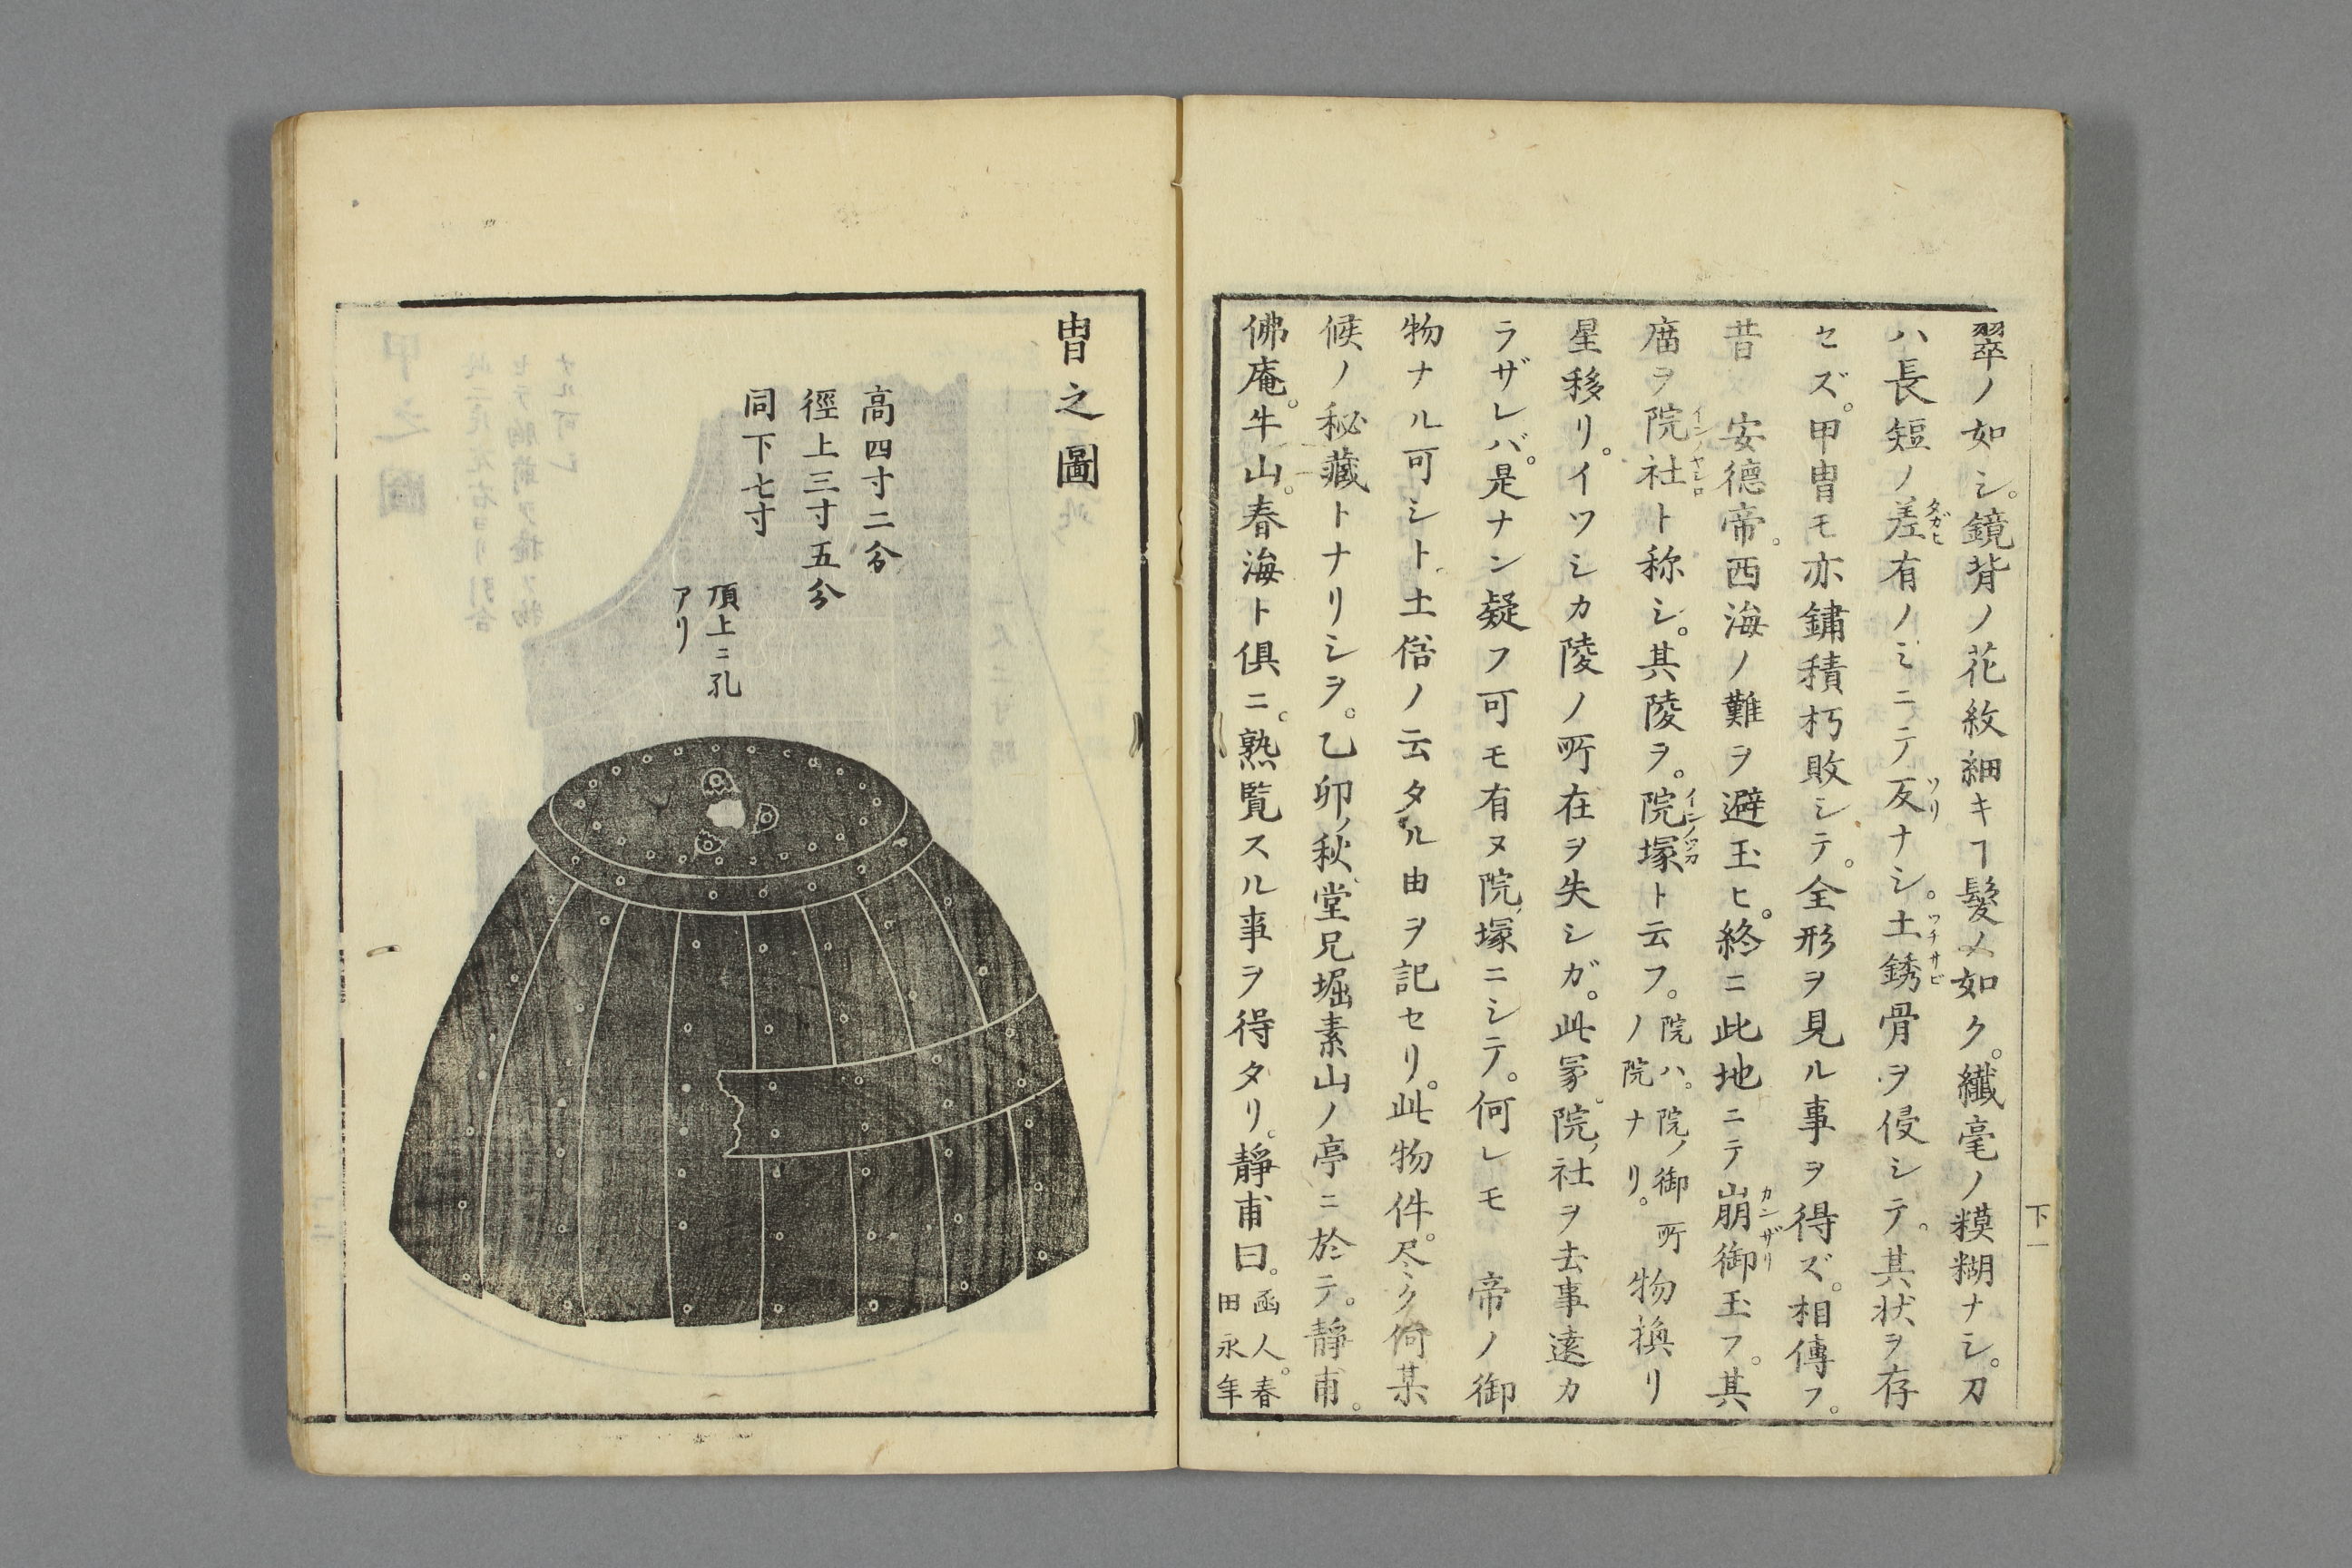 翠ノ如シ。鏡背ノ花紋細キヿ髮ノ如ク。纖毫ノ糢糊ナシ。刀
ハ長短ノ差有ノミニテ反ナシ。土銹骨ヲ侵シテ。其状ヲ存
タガヒ
ソリ
ツチサビ
セズ。甲冑モ亦鏽積朽敗シテ。全形ヲ見ル事ヲ得ズ。相傳フ。
昔 安德帝。西海ノ難ヲ避玉ヒ。終ニ此地ニテ崩御玉フ。其
カンザリ
廟ヲ院社ト称シ。其陵ヲ。院塚ト云フ。院ハ。院ノ御所ノ院ナリ。物換リ
インノヤシロ
インノツカ
星移リ。イツシカ陵ノ所在ヲ失シガ。此冢。院ノ社ヲ去事遠カ
ラザレバ。是ナン疑フ可モ有ヌ院ノ塚ニシテ。何レモ 帝ノ御
物ナル可シト土俗ノ云タル由ヲ記セリ。此物件。尽ク何某
候ノ秘藏トナリシヲ。乙卯ノ秋堂兄堀素山ノ亭ニ於テ。靜甫。
佛庵。牛山。春海ト倶ニ。熟覧スル事ヲ得タリ。靜甫曰。函人。春田永年
下一
冑之圖
高四寸二分
徑上三寸五分
同下七寸
頂上ニ孔
アリ